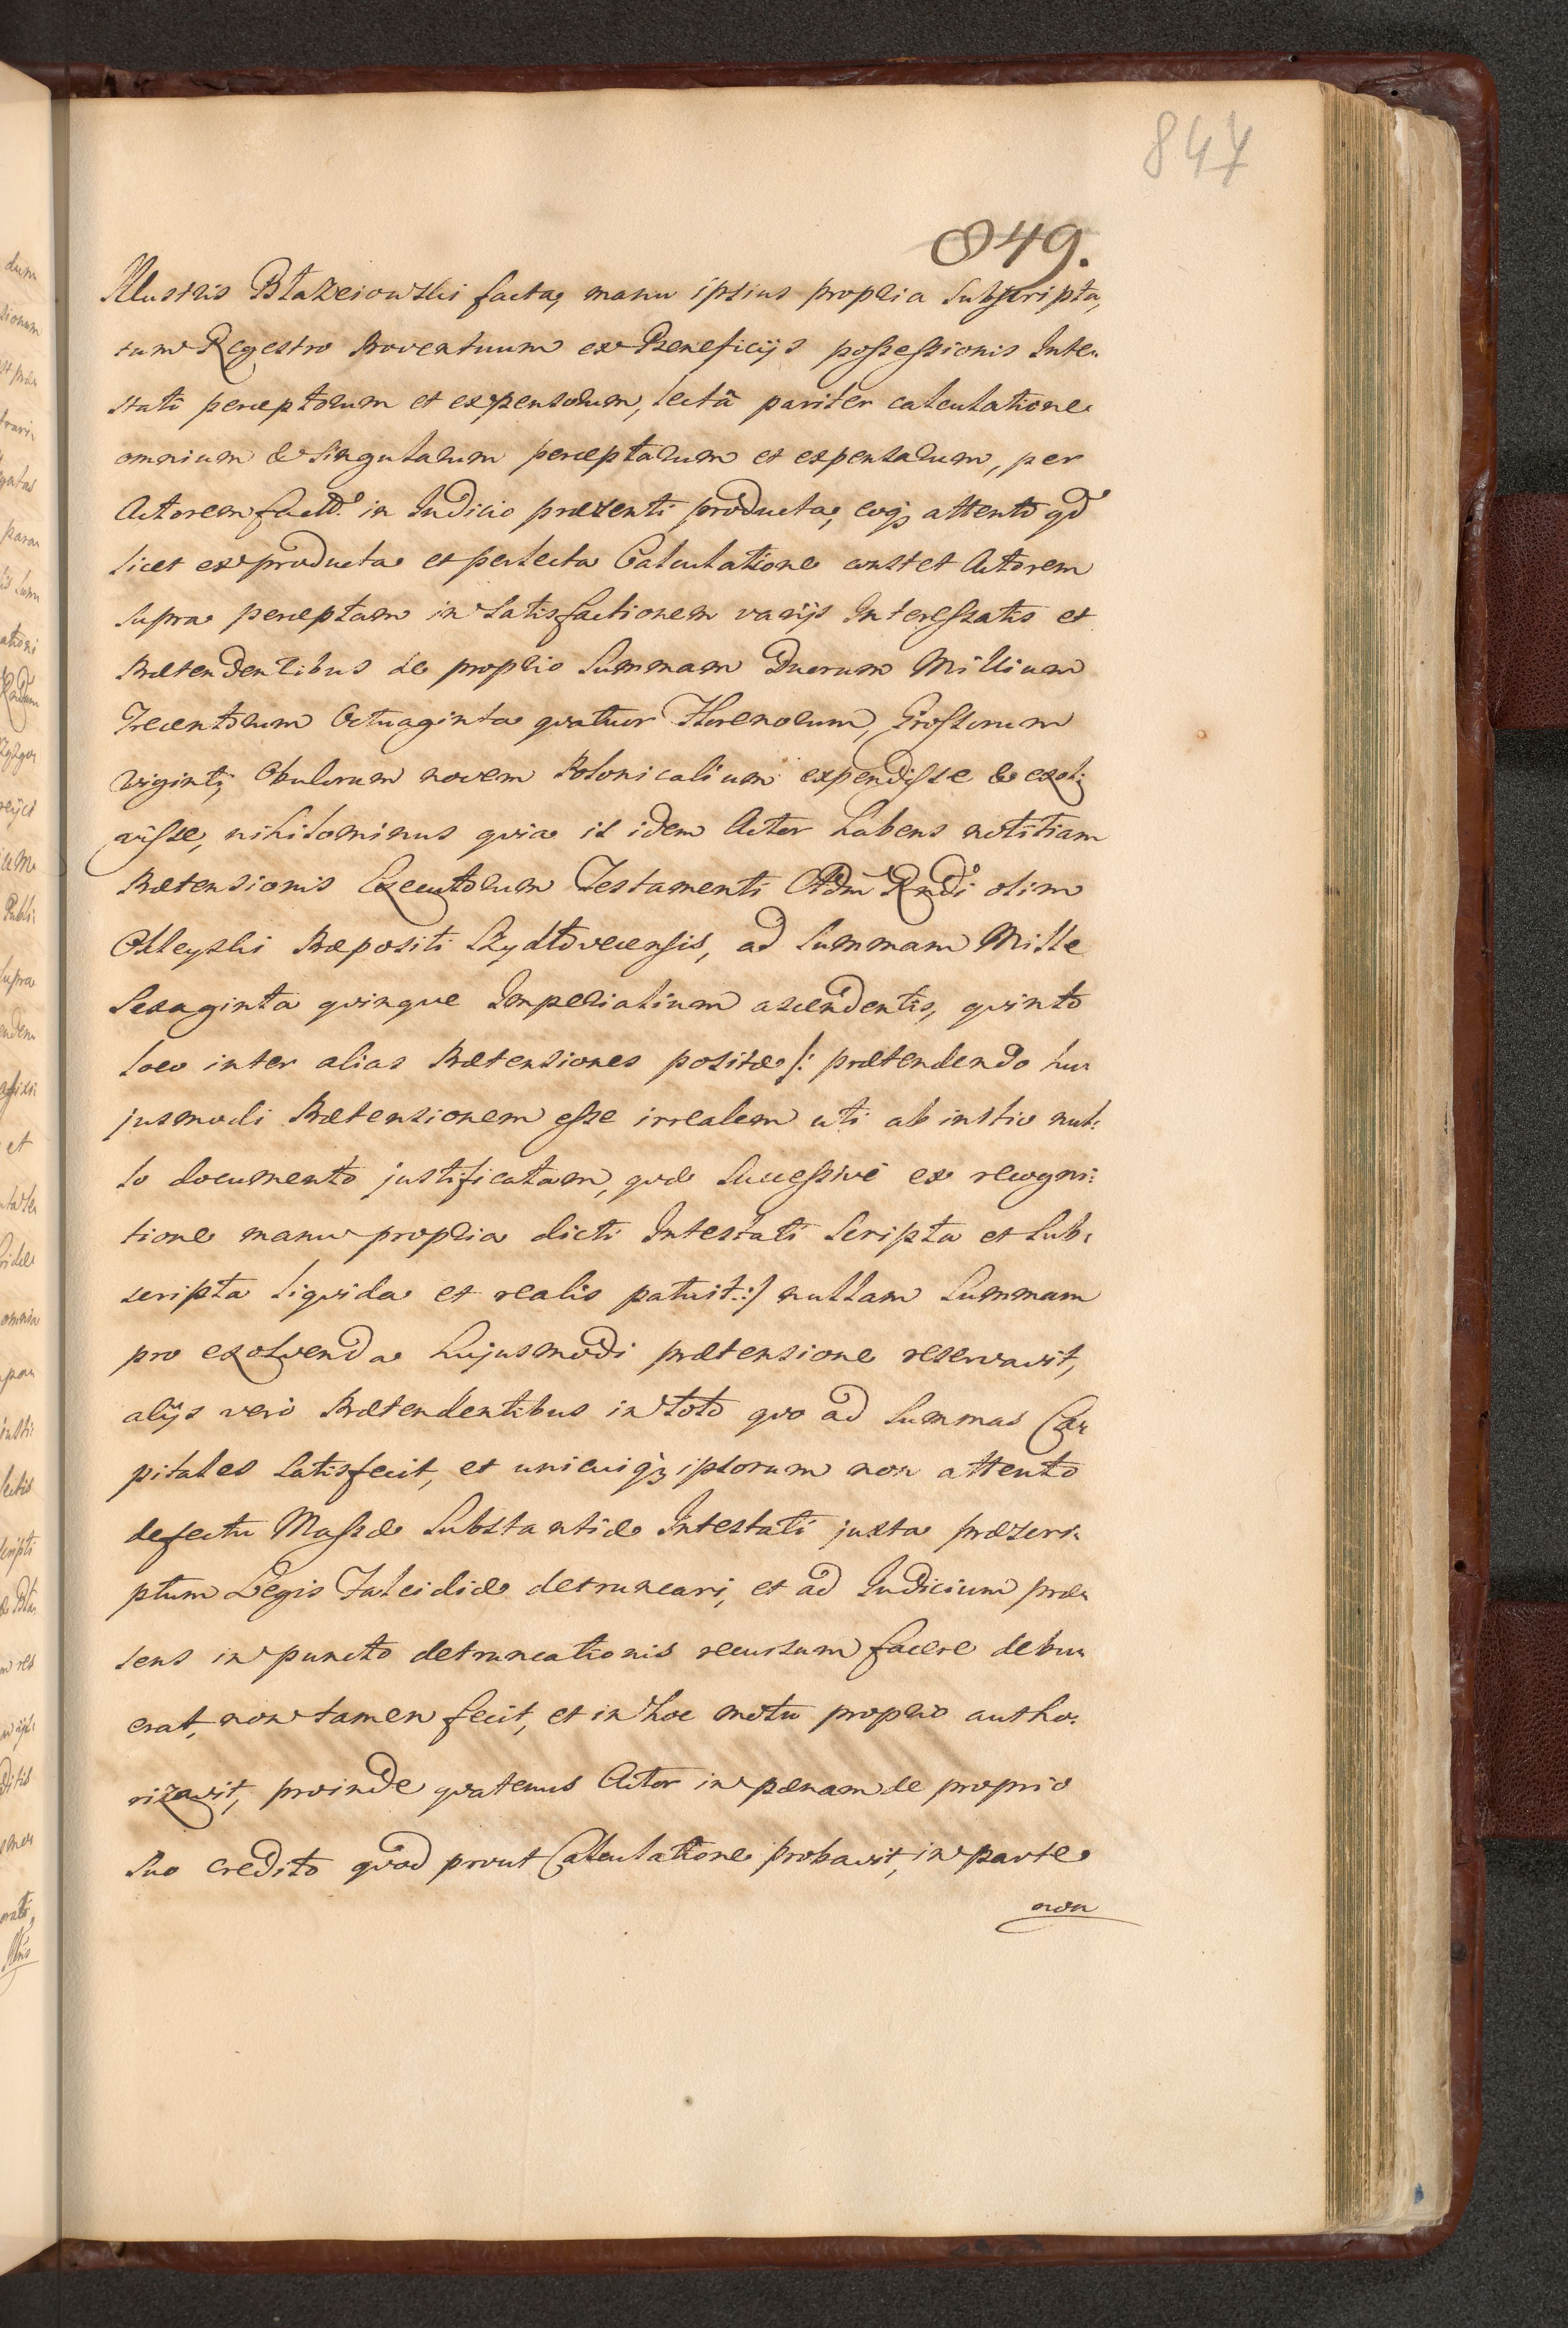 847
849.
Illustris Błazeiowski facta, manu ipsius propria subscripta,
cum Regestro Proventuum ex Beneficijs possessionis Inte-
stati perceptorum et expensorum, lectâ pariter calculatione
omnium & singularum perceptarum et expensarum, per
Actorem factâ in Judicio præsenti producta, eoq3 attento qd
licet ex producta et perlecta Calculatione constet Actorem
supra perceptam in satisfactionem varijs Interessatis et
Prætendentibus de proprio Summam Duorum Millium
Trecentorum Octuaginta quatuor Florenorum, Grossorum
viginti, Obulorum novem Polonicalium expendisse & exol-
visse, nihilominus quia is idem Actor habens notitiam
Prætensionis Executorum Testamenti Adm Rndi olim
Præpositi Szydłoviecensis, ad Summam Mille
Sexaginta quinque Imperialium ascendentis, quinto
loco inter alias Prætensiones positæ /: prætendendo hu-
jusmodi Prætensionem esse irrealem uti ab initio nul-
lo documento justificatam, quæ successivè ex recogni:
tione manu propria dicti Intestati scripta et sub-
scripta liquida et realis patuit :/ nullam Summam
pro exolvenda hujusmodi prætensione reservavit,
alijs verò Prætendentibus in toto quo ad Summas Ca-
pitales satisfecit, et unicuiq3 ipsorum non attento
defectu Massæ Substantiæ Intestati juxta præscri-
ptum Legis Falcidiæ detruncari, et ad Judicium præ-
sens in puncto detruncationis recursum facere debu-
erat, non tamen fecit, et in hoc motu proprio autho-
rizavit, proinde quatenus Actor in pœnam de proprio
suo credito quod prout Calculatione probavit, in parte
non